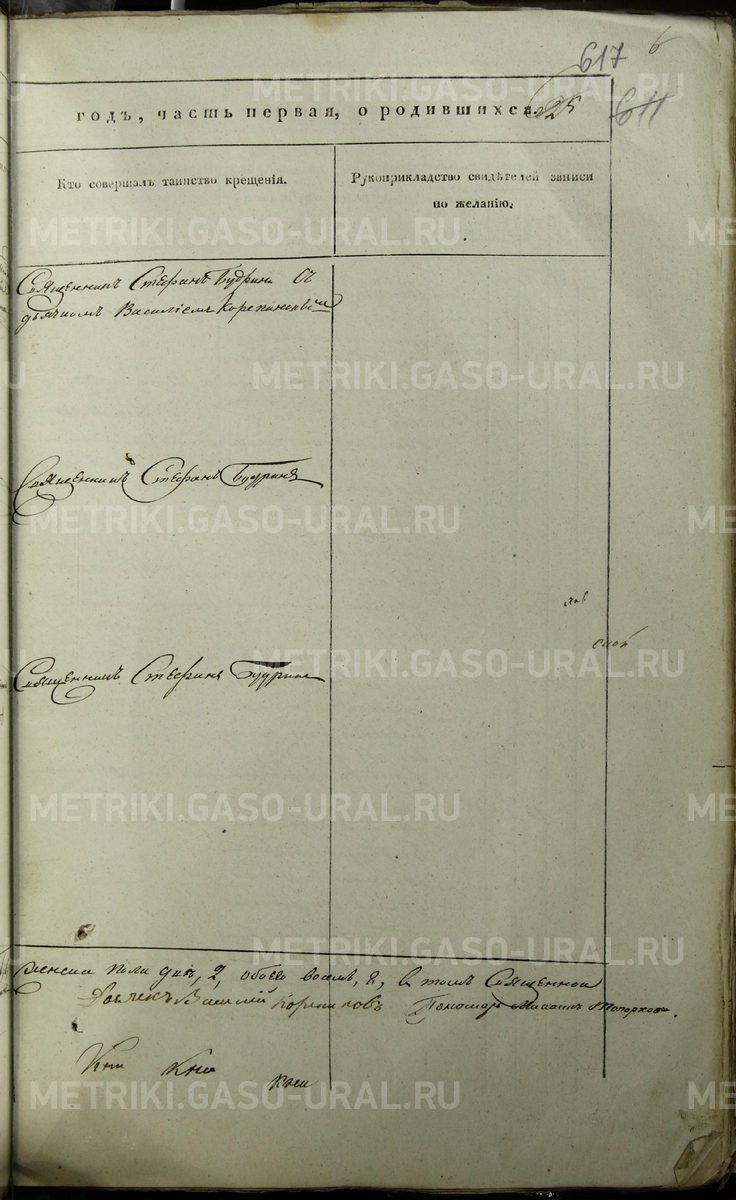 617
6
годъ, часть первая, о родившихся.
25
611
Кто совершалъ таинство крещенія.
Рукоприкладство свидѣтелей записи
по желанію.
Священникъ Стефанъ Будринъ съ
дьячкомъ Василіемъ
Священникъ Стефанъ Будринъ
Священникъ Стефанъ Будринъ
женска пола двѣ, 2, обоего восемь, 8, в томъ Священной
Дьячекъ Василій Пономарь Топорковъ.
Кни Кни Кни
METRIKI.GASO-URAL.RU